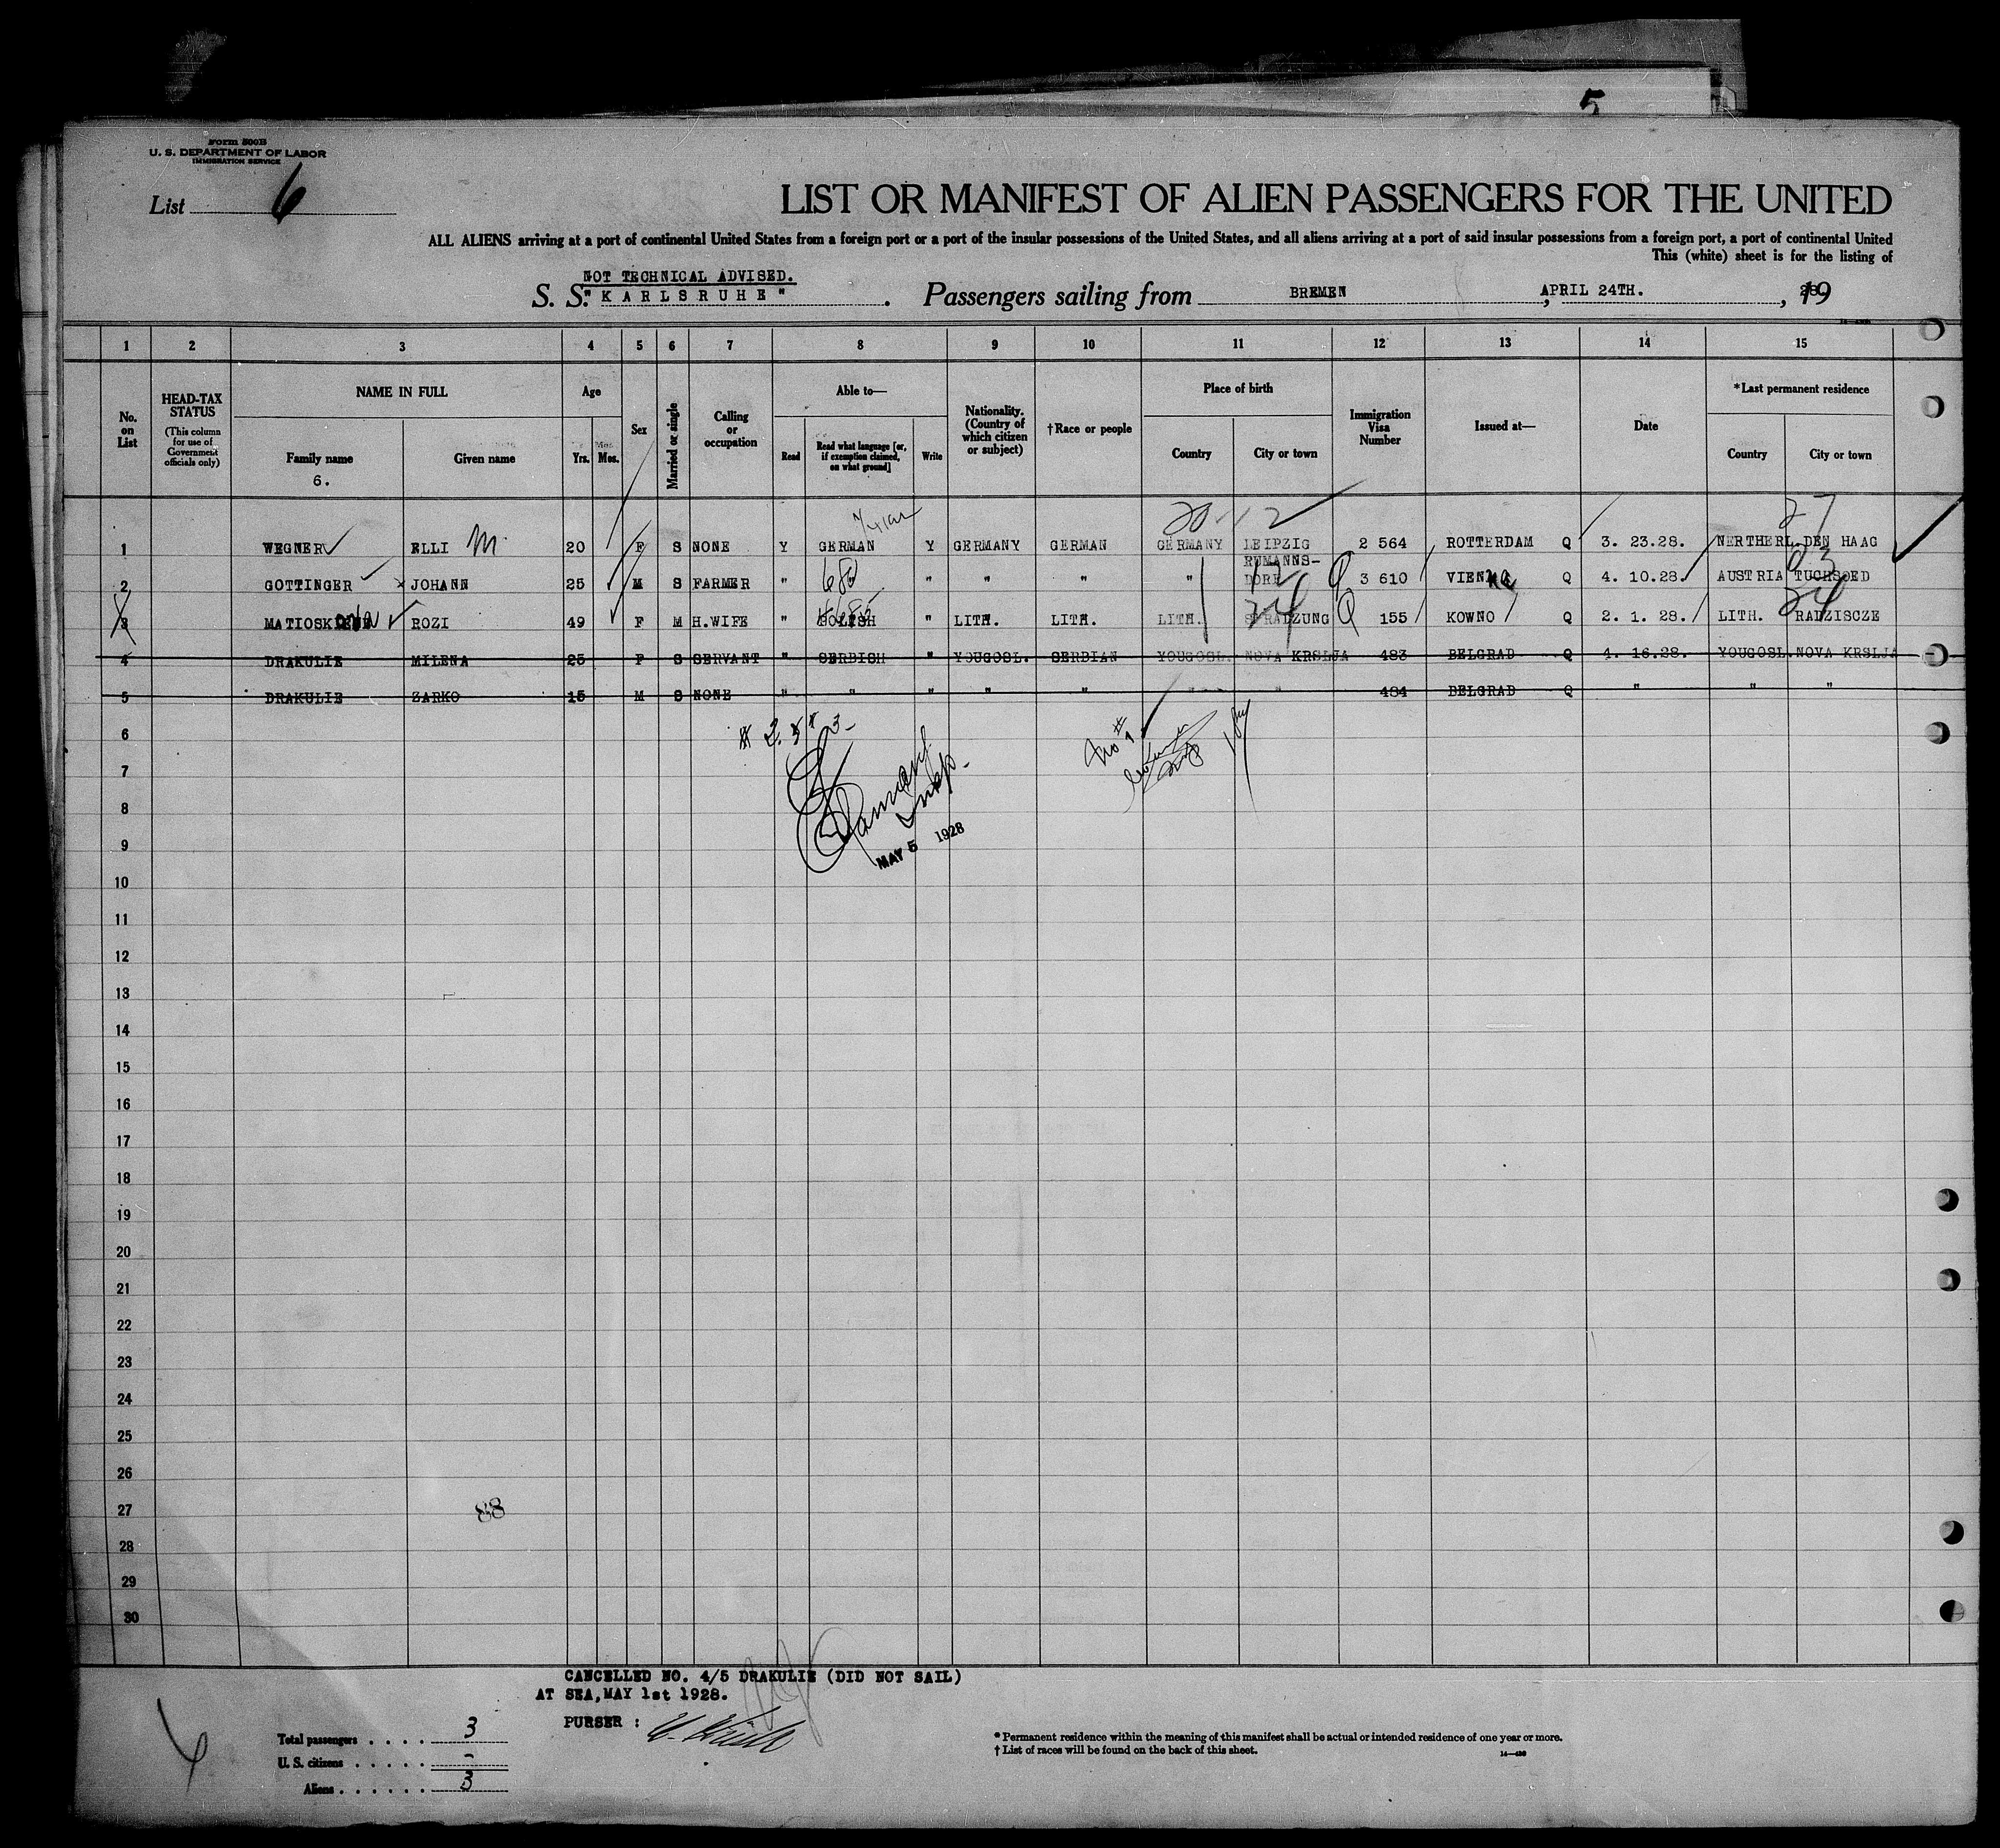 5
Form 500B
U. S. DEPARTMENT OF LABOR
IMMIGRATION SERVICE
List 6
LIST OR MANIFEST OF ALIEN PASSENGERS FOR THE UNITED
ALL ALIENS arriving at a port of continental United States from a foreign port or a port of the insular possessions of the United States, and all aliens arriving at a port of said insular possessions from a foreign port, a port of continental United
This (white) sheet is for the listing of
NOT TECHNICAL ADVISED.
S. S. "KARLSRUHE". Passengers sailing from BREMEN, APRIL 24TH., 1928
1 2 3 4 5 6 7 8 9 10 11 12 13 14 15
No. on List
HEAD-TAX STATUS (This column for use of Government officials only)
NAME IN FULL
Family name
6.
Given name
Age
Yrs. Mos.
Sex
Married or single
Calling or occupation
Able to—
Read
Read what language [or, if exemption claimed, on what ground]
Write
Nationality. (Country of which citizen or subject)
†Race or people
Place of birth
Country
City or town
Immigration Visa Number
Issued at—
Date
*Last permanent residence
Country
City or town
20-12 27
1 WEGNER ELLI M 20 F S NONE Y GERMAN Y GERMANY GERMAN GERMANY LEIPZIG 2 564 ROTTERDAM Q 3. 23.28. NERTHERL.DEN HAAG
2 GOTTINGER x JOHANN 25 M S FARMER " 680 " " " " RUMANNS-DORF 12 Q 3 610 VIENNA Q 4. 10.28. AUSTRIA TUCHSOED 03
3 MATIOSK ROZI 49 F M H.WIFE " POLISH " LITH. LITH. LITH. 24 Q 155 KOWNO Q 2. 1. 28. LITH. RADZISCZE 24
4 DRAKULIE MILENA 25 F S SERVANT " SERBISH " YOUGOSL. SERBIAN YOUGOSL. NOVA KRSLJA 483 BELGRAD Q 4. 16.28. YOUGOSL.NOVA KRSLJA
5 DRAKULIE ZARKO 15 M S NONE " " " " " " " 484 BELGRAD Q " " "
6
7
8
9
Insp.
MAY 5 1928
No #1
10
11
12
13
14
15
16
17
18
19
20
21
22
23
24
25
26
27
88
28
29
30
CANCELLED NO. 4/5 DRAKULIE (DID NOT SAIL)
AT SEA, MAY 1st 1928.
PURSER :
Total passengers . . . . 3
U. S. citizens . . . . . -
Aliens . . . . . . 3
* Permanent residence within the meaning of this manifest shall be actual or intended residence of one year or more.
† List of races will be found on the back of this sheet.